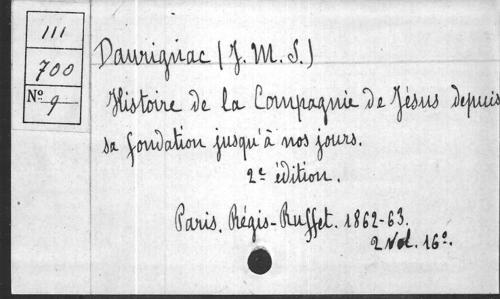 III
700
Nº 9
Daurignac (J. M. S.)
Histoire de la Compagnie de Jésus depuis
sa fondation jusqu'à nos jours.
2e édition.
Paris. Régis-Ruffet. 1862-63.
2 Vol. 16º.